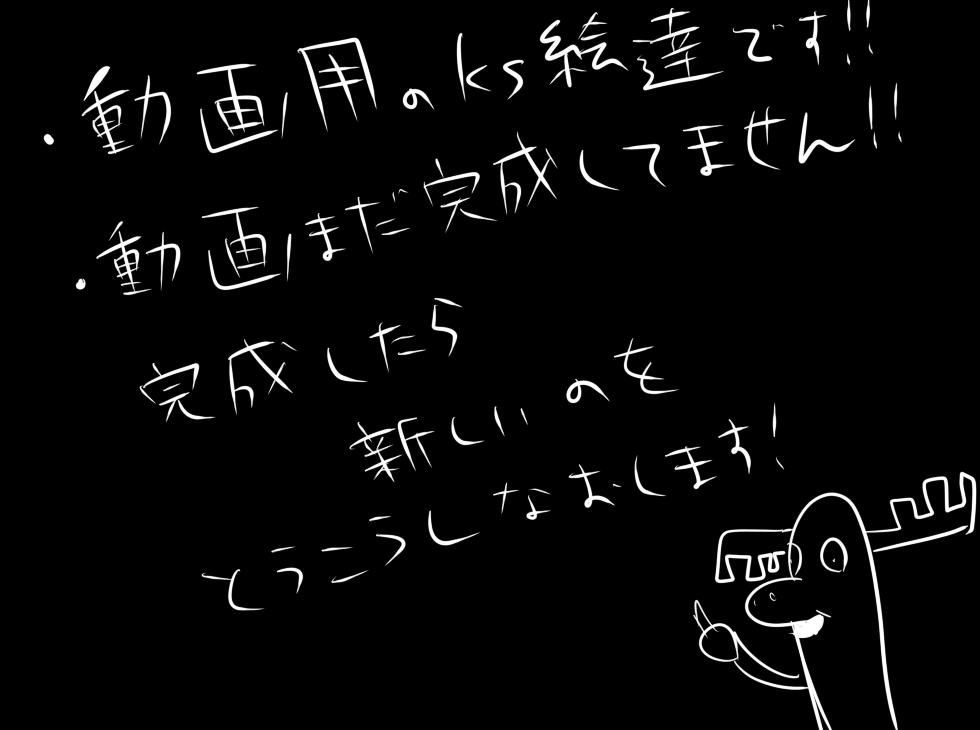 ・動画用のks絵達です!!
・動画まだ完成してません!!
完成したら
新しいのを
とうこうしなおします!